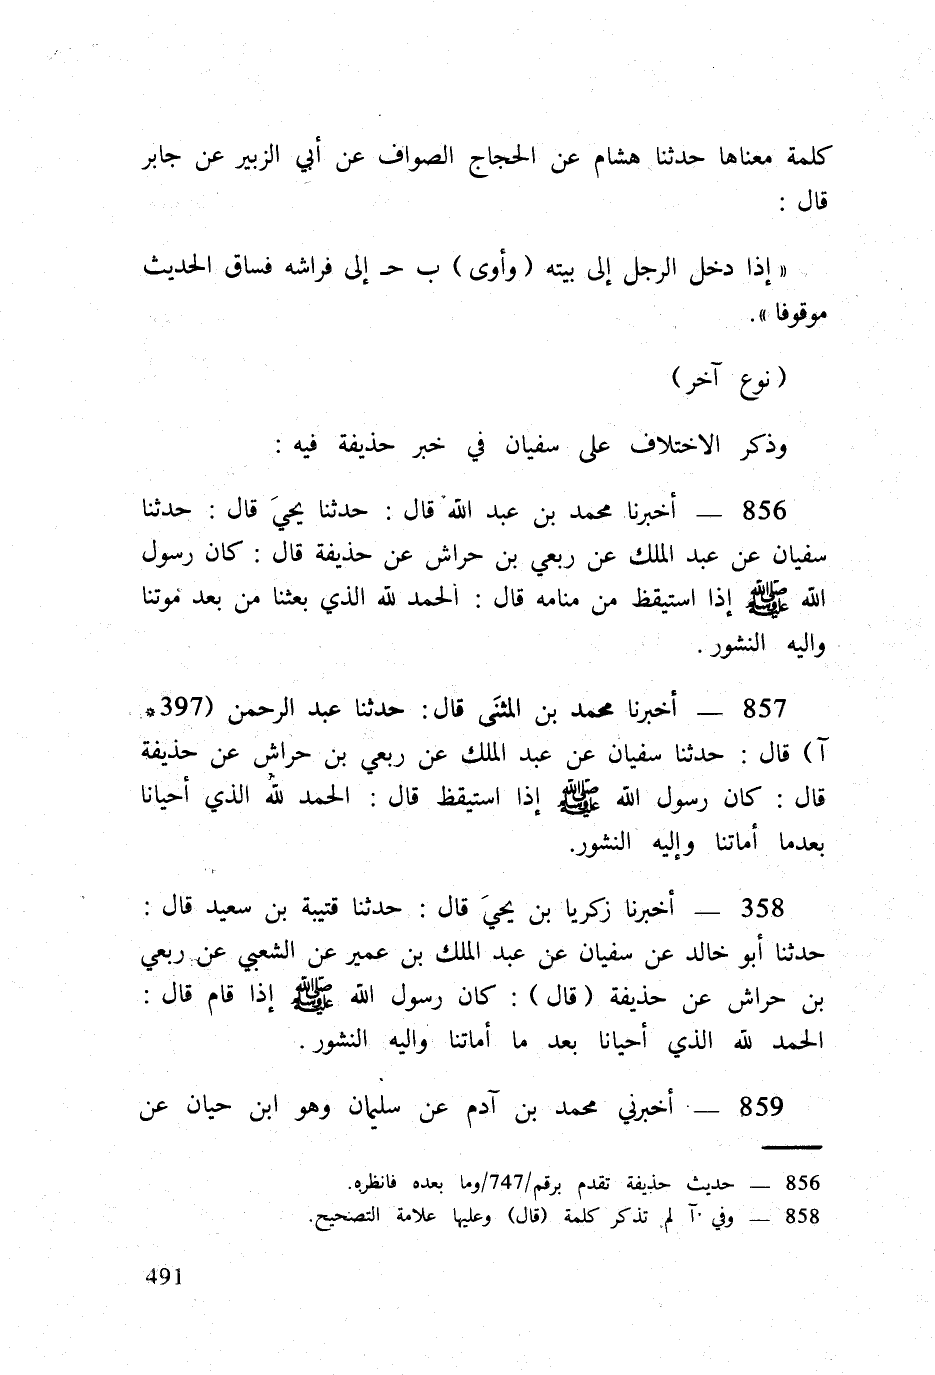 كلمة معناها حدثنا هشام عن الحجاج الصواف عن أبي الزبير عن جابر
قال :
« إذا دخل الرجل إلى بيته ( وأوى ) ب حـ إلى فراشه فساق الحديث
موقوفا ».
( نوع آخر )
وذكر الاختلاف على سفيان في خبر حذيفة فيه :
856 — أخبرنا محمد بن عبد الله قال : حدثنا يحيَ قال : حدثنا
سفيان عن عبد الملك عن ربعي بن حراش عن حذيفة قال : كان رسول
الله ﷺ إذا استيقظ من منامه قال : الحمد لله الذي بعثنا من بعد موتنا
واليه النشور .
857 — أخبرنا محمد بن المثنَى قال: حدثنا عبد الرحمن (397*
آ) قال : حدثنا سفيان عن عبد الملك عن ربعي بن حراش عن حذيفة
قال : كان رسول الله ﷺ إذا استيقظ قال : الحمد لله الذي أحيانا
بعدما أماتنا وإليه النشور.
358 — أخبرنا زكريا بن يحيَ قال : حدثنا قتيبة بن سعيد قال :
حدثنا أبو خالد عن سفيان عن عبد الملك بن عمير عن الشعبي عن ربعي
بن حراش عن حذيفة ( قال ) : كان رسول الله ﷺ إذا قام قال :
الحمد لله الذي أحيانا بعد ما أماتنا واليه النشور .
859 — أخبرني محمد بن آدم عن سليمان وهو ابن حيان عن
856 — حديث حذيفة تقدم برقم/747/وما بعده فانظره.
858 — وفي آ لم تذكر كلمة (قال) وعليها علامة التصحيح.
491